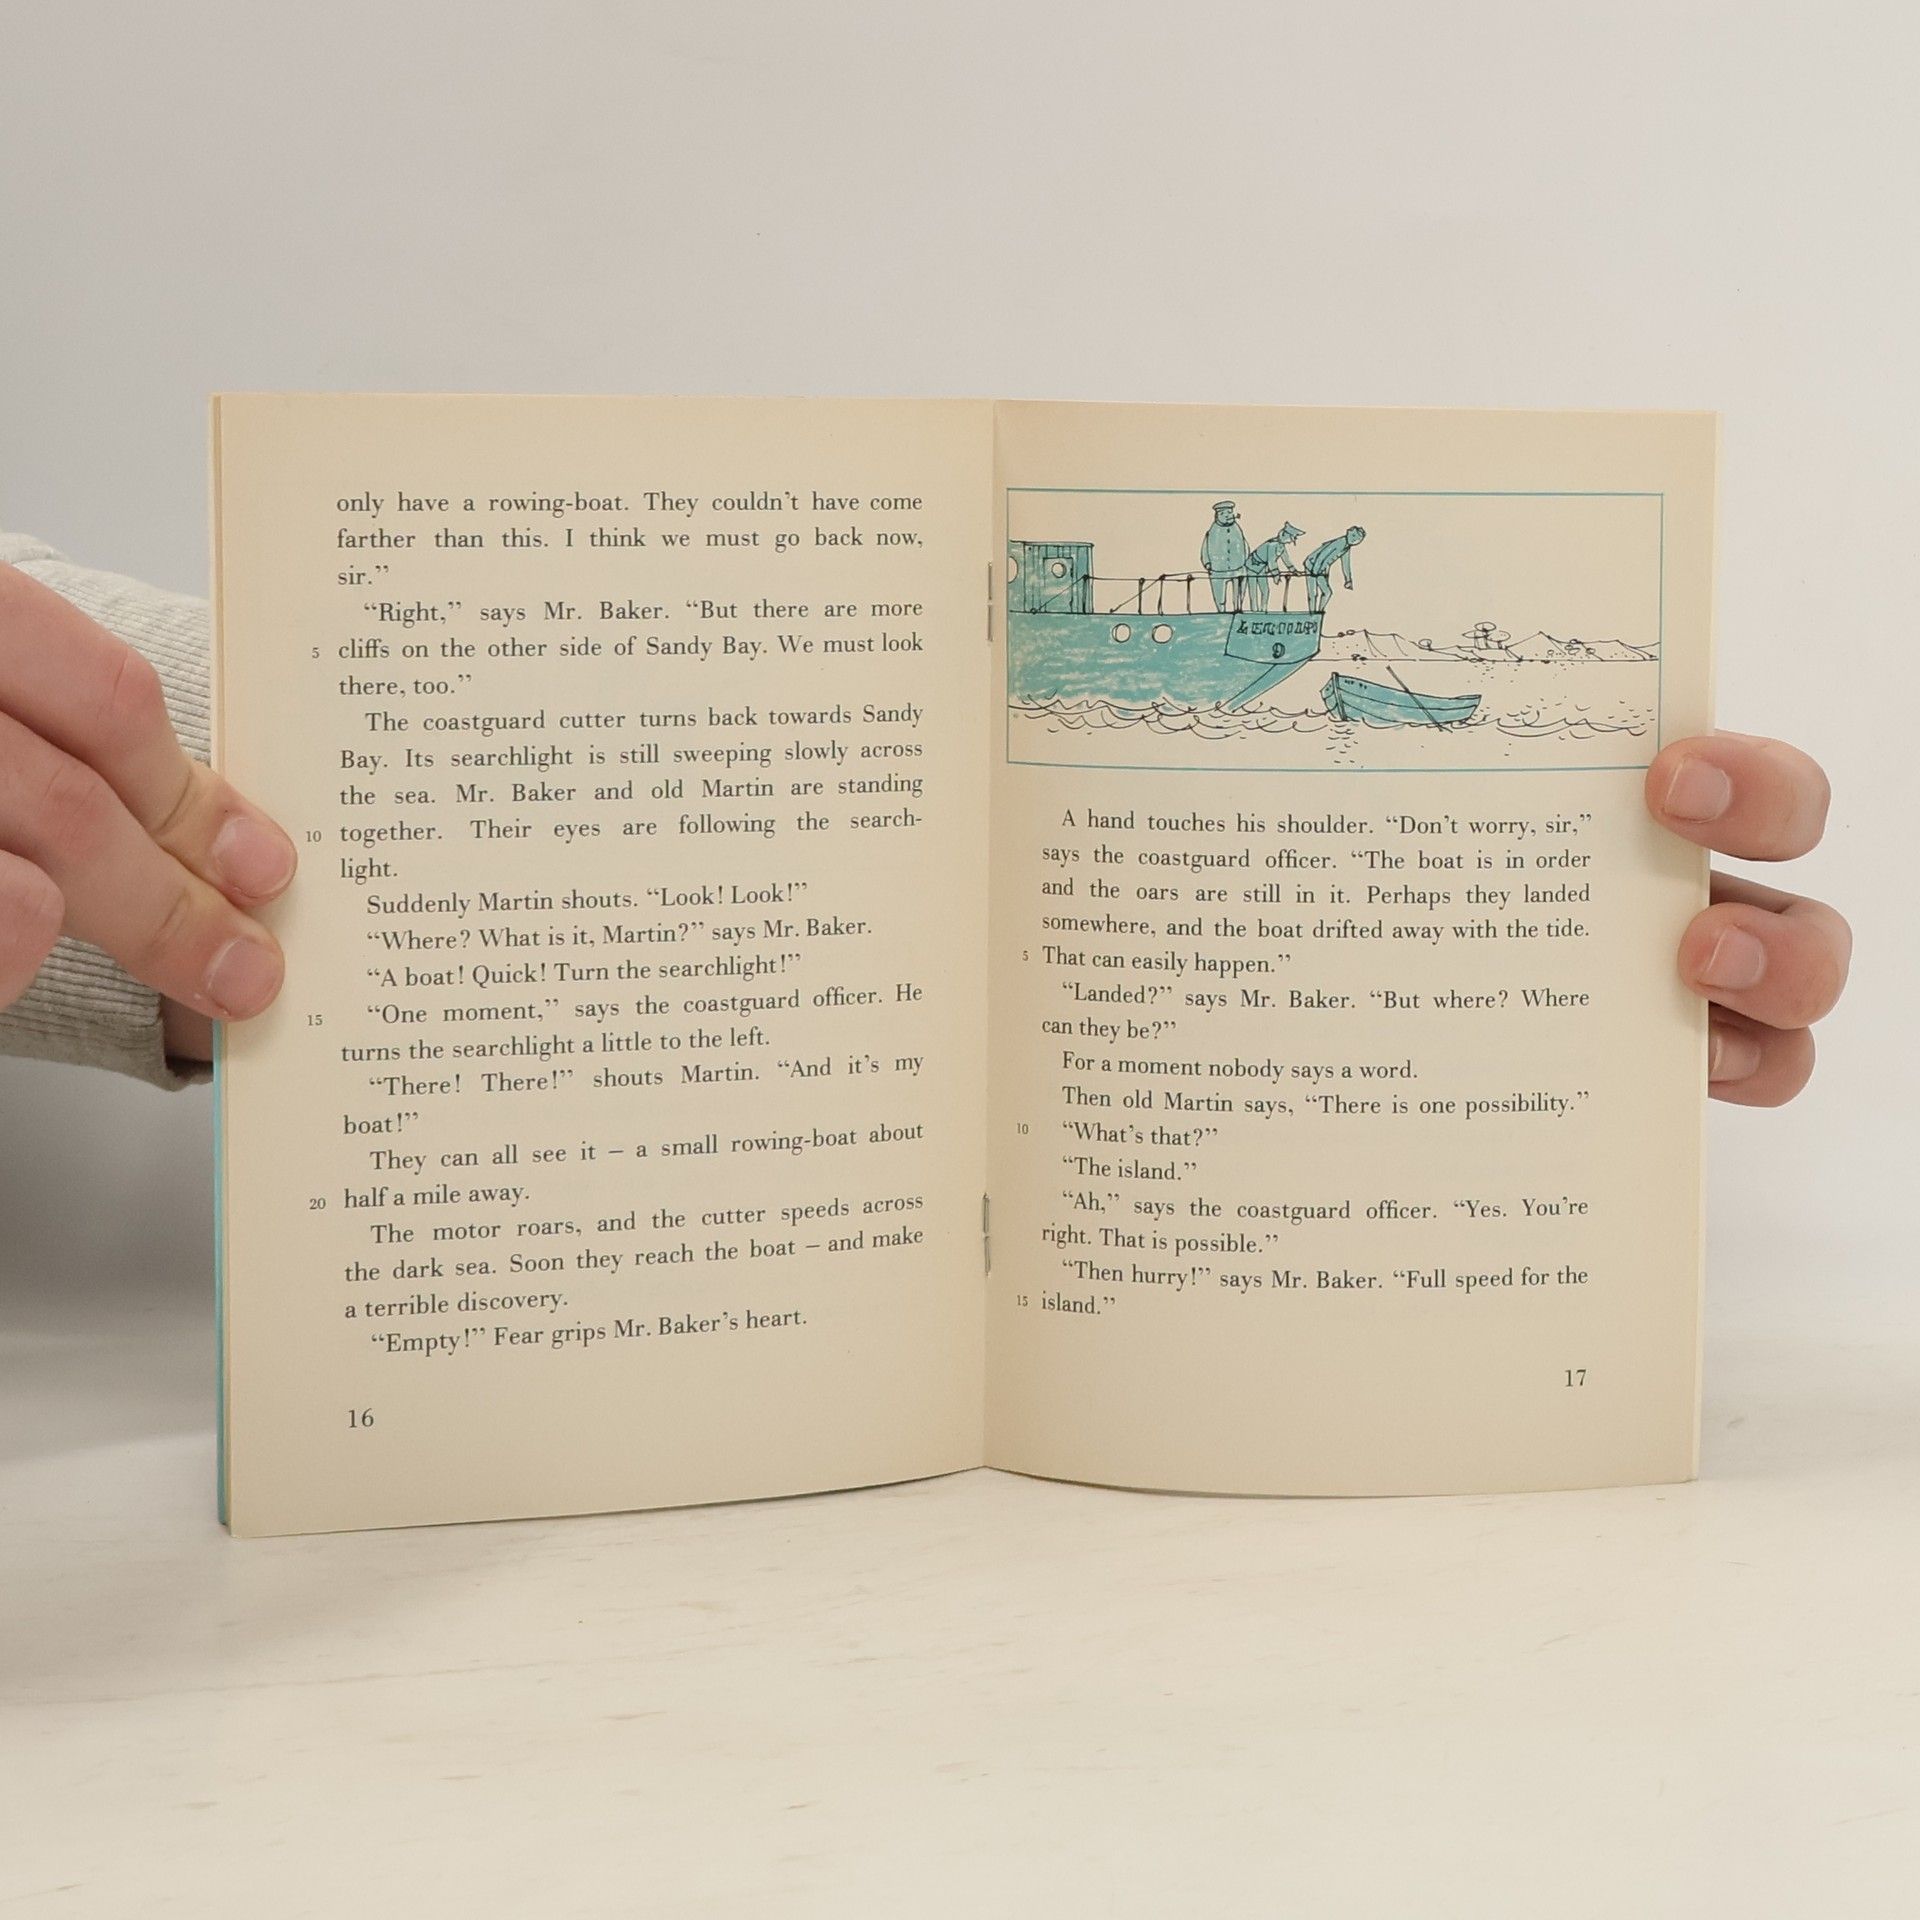 only have a rowing-boat. They couldn't have come
farther than this. I think we must go back now,
sir.”
“Right,” says Mr. Baker. “But there are more
5 cliffs on the other side of Sandy Bay. We must look
there, too.”
The coastguard cutter turns back towards Sandy
Bay. Its searchlight is still sweeping slowly across
the sea. Mr. Baker and old Martin are standing
10 together. Their eyes are following the search-
light.
Suddenly Martin shouts. “Look! Look!”
“Where? What is it, Martin?” says Mr. Baker.
“A boat! Quick! Turn the searchlight!”
15 “One moment,” says the coastguard officer. He
turns the searchlight a little to the left.
“There! There!” shouts Martin. “And it's my
boat!”
They can all see it – a small rowing-boat about
20 half a mile away.
The motor roars, and the cutter speeds across
the dark sea. Soon they reach the boat – and make
a terrible discovery.
“Empty!” Fear grips Mr. Baker's heart.
16
A hand touches his shoulder. “Don't worry, sir,”
says the coastguard officer. “The boat is in order
and the oars are still in it. Perhaps they landed
somewhere, and the boat drifted away with the tide.
5 That can easily happen.”
“Landed?” says Mr. Baker. “But where? Where
can they be?”
For a moment nobody says a word.
Then old Martin says, “There is one possibility.”
10 “What's that?”
“The island.”
“Ah,” says the coastguard officer. “Yes. You're
right. That is possible.”
“Then hurry!” says Mr. Baker. “Full speed for the
15 island.”
17